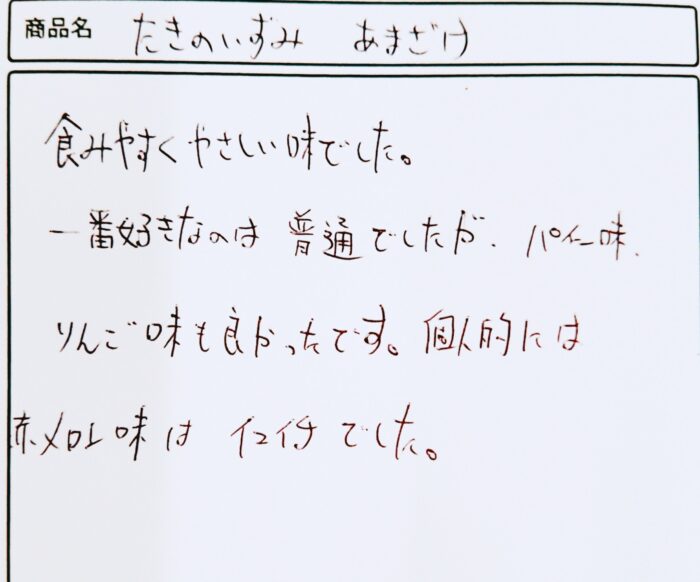 商品名 たきのいずみ あまざけ
食みやすくやさしい味でした。
一番好きなのは 普通でしたが、パイン味、
りんご味も良かったです。個人的には
赤メロン味は イマイチでした。